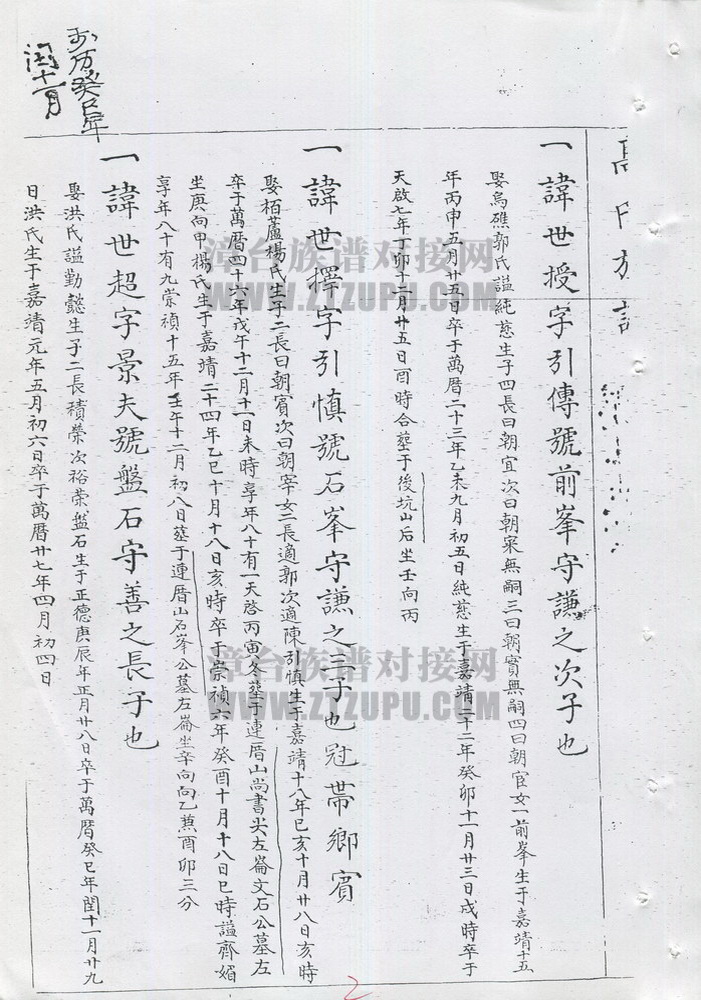 一諱世授字引傳號前峯守謙之次子也
娶烏礁郭氏謚純慈生子四長曰朝宜次曰朝寀無嗣三曰朝實無嗣四曰朝官女一前峯生于嘉靖十五
年丙申五月廿五日卒于萬曆二十三年乙未九月初五日純慈生于嘉靖二十二年癸卯十一月廿三日戌時卒于
天啟七年丁卯十二月廿五日酉時合塟于後坑山后坐壬向丙
一諱世擇字引慎號石峯守謙之三子也冠帶鄉賓
娶栢蘆楊氏生子二長曰朝賓次曰朝宰女二長適郭次適陳引慎生于嘉靖十八年己亥十月廿八日亥時
卒于萬曆四十六年戊午十二月十一日未時享年八十有一天啓丙寅冬塟于連厝山尚書尖左崙文石公墓左
坐庚向甲楊氏生于嘉靖二十四年乙巳十月十八日亥時卒于崇禎六年癸酉十月十八日巳時謚齊媚
享年八十有九崇禎十五年壬午十二月初八日塟于連厝山石峯公墓左崙坐辛向向乙兼酉卯三分
一諱世超字景夫號盤石守善之長子也
娶洪氏謚勤懿生子二長積榮次裕榮盤石生于正德庚辰年正月廿八日卒于萬曆癸巳年閏十一月廿九
日洪氏生于嘉靖元年五月初六日卒于萬曆廿七年四月初四日
历癸巳年
闰十一月
漳台族谱对接网
WWW.ZTZUPU.COM
漳台族谱对接网
WWW.ZTZUPU.COM
2